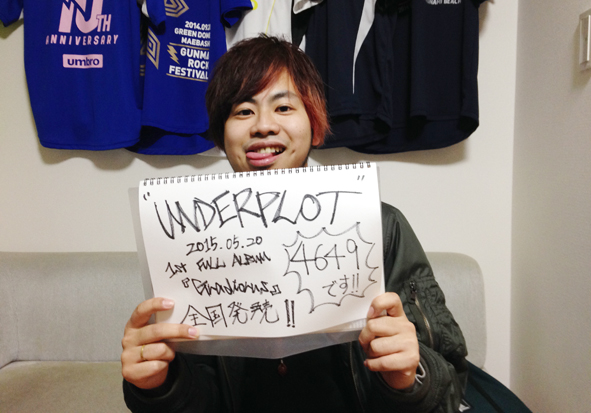 10TH
ANNIVERSARY
umbro
2014.09.
GREEN DOME
MAEBASHI
GUNMA
ROCK
FESTIVAL
"UNDERPLOT"
2015.05.20
1st FULL ALBUM
全国発売!!
4649
です!!